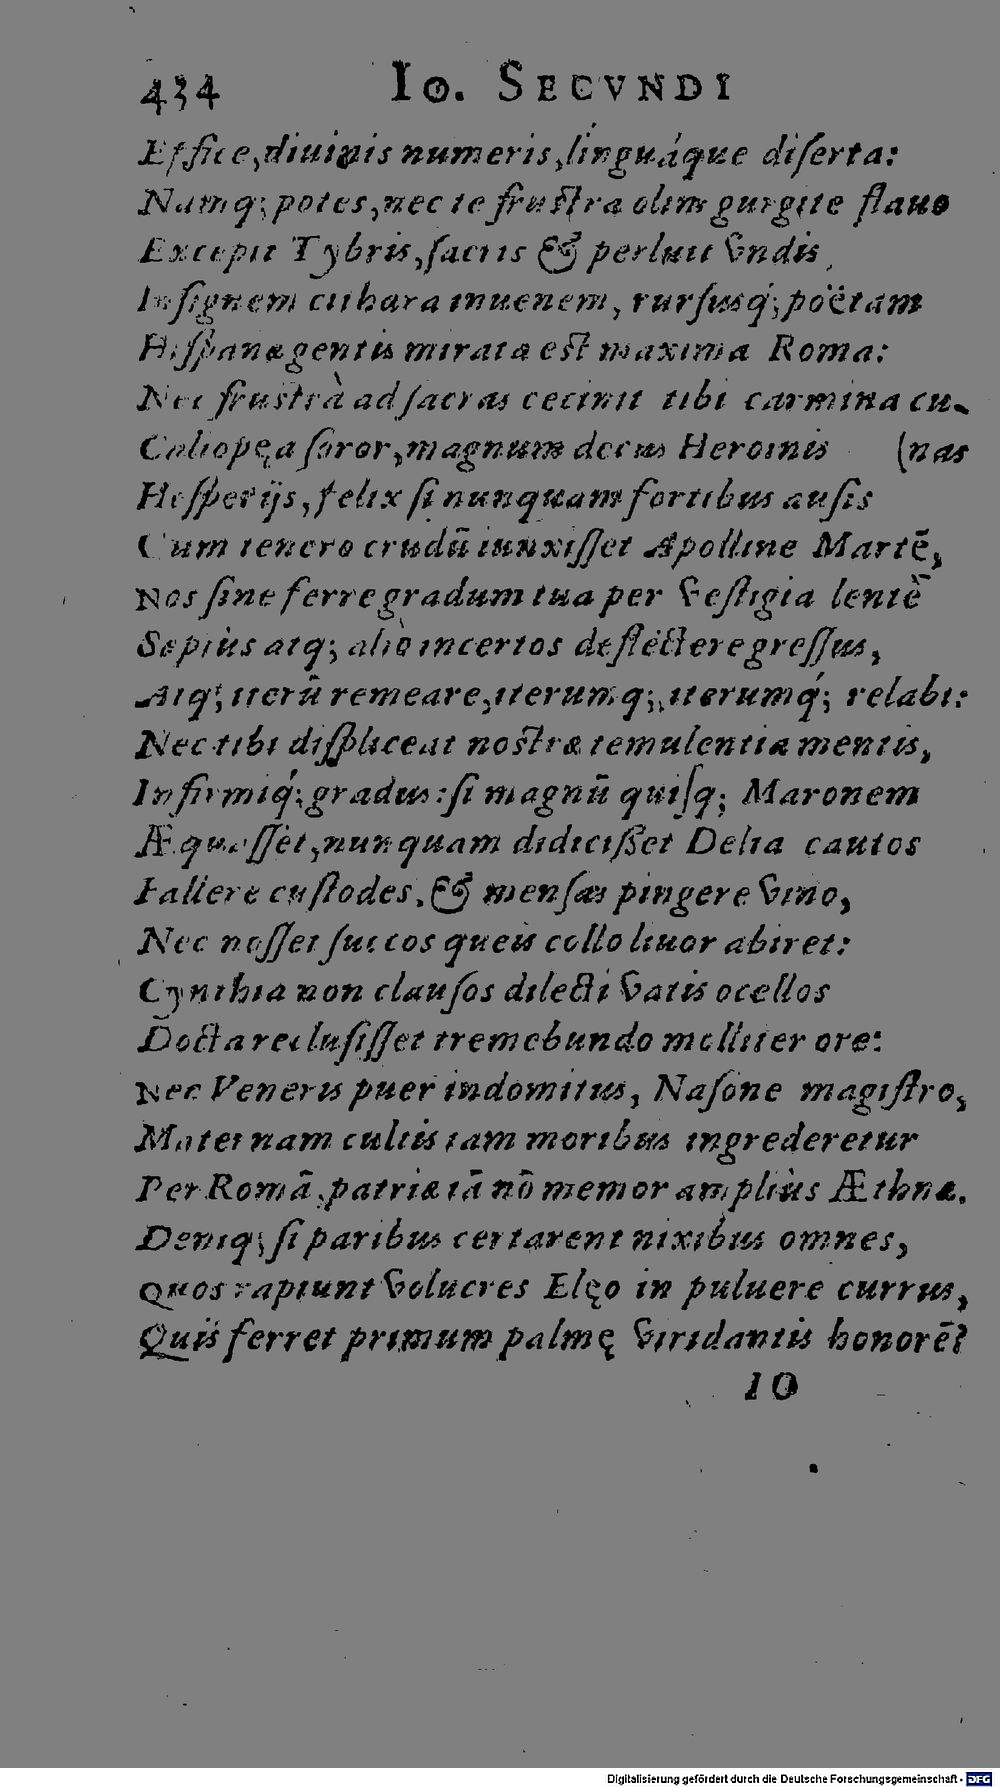 434 Io. SECVNDI
Effice, diuinis numeris, linguáque diſerta:
Namq; potes, nec te fruſtra olim gurgite flauo
Excepit Tybris, ſacris & perluit vndis,
Inſignem cithara iuuenem, rurſusq́; poëtam
Hiſpanæ gentis mirata eſt maxima Roma:
Nec fruſtrà ad ſacras cecinit tibi carmina cu-
Caliopęa ſoror, magnum decus Heroinis (nas
Heſperijs, felix ſi nunquam fortibus auſis
Cum tenero crudū iunxiſſet Apolline Martē,
Nos ſine ferre gradum tua per veſtigia lentè
Sæpiùs atq; aliò incertos defléctere greſſus,
Atq; iterū remeare, iterumq;, iterumq́; relabi:
Nec tibi diſpliceat noſtræ temulentia mentis,
Infirmiq́; gradus: ſi magnū quiſq; Maronem
Æquaſſet, nunquam didiciſſet Delia cautos
Fallere cuſtodes, & menſas pingere vino,
Nec noſſet ſuccos queis collo liuor abiret:
Cynthia non clauſos dilecti vatis ocellos
Docta recluſiſſet tremebundo molliter ore:
Nec Veneris puer indomitus, Naſone magiſtro,
Maternam cultis iam moribus ingrederetur
Per Romā, patriæ iā nō memor ampliùs Æthnæ.
Deniq; ſi paribus certarent nixibus omnes,
Quos rapiunt volucres Elęo in puluere currus,
Quis ferret primum palmę viridantis honorē?
IO
Digitalisierung gefördert durch die Deutsche Forschungsgemeinschaft - DFG